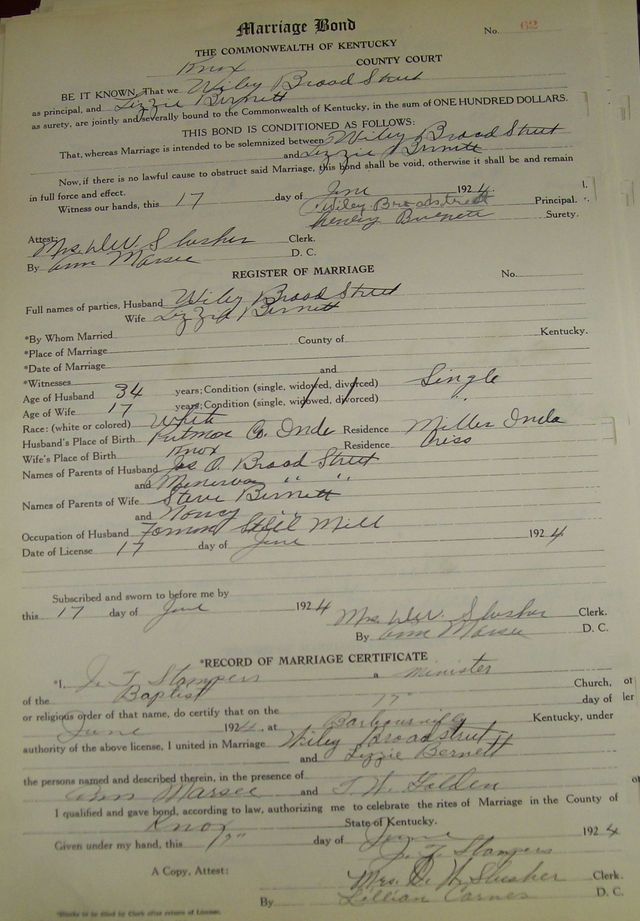 Marriage Bond
No. 62
THE COMMONWEALTH OF KENTUCKY
Knox COUNTY COURT
BE IT KNOWN, That we Wiley Broad Street
as principal, and Lizzie Birnett
as surety, are jointly and severally bound to the Commonwealth of Kentucky, in the sum of ONE HUNDRED DOLLARS.
THIS BOND IS CONDITIONED AS FOLLOWS:
That, whereas Marriage is intended to be solemnized between Wiley Broad Street
and Lizzie Birnett
Now, if there is no lawful cause to obstruct said Marriage, this bond shall be void, otherwise it shall be and remain
in full force and effect.
Witness our hands, this 17 day of June 1924.
Wiley Broadstreet Principal.
Henry Burnett Surety.
Attest:
Mrs. D.W. Slusher Clerk.
By Ann Marsee D. C.
REGISTER OF MARRIAGE
No.
Full names of parties, Husband Wiley Broad Street
Wife Lizzie Birnett
*By Whom Married
*Place of Marriage County of Kentucky.
*Date of Marriage
*Witnesses and
Age of Husband 34 years; Condition (single, widowed, divorced) Single
Age of Wife 17 years; Condition (single, widowed, divorced) "
Race: (white or colored) White
Husband's Place of Birth Putmon Co. Inde Residence Miller Inda
Wife's Place of Birth Knox Residence Criss
Names of Parents of Husband Jas O. Broad Street
and Minerva " "
Names of Parents of Wife Steve Birnett
and Noncy "
Occupation of Husband Forman Steel Mill
Date of License 17 day of June 1924
Subscribed and sworn to before me by
this 17 day of June 1924 Mrs. D.W. Slusher Clerk.
By Ann Marsee D. C.
*RECORD OF MARRIAGE CERTIFICATE
*I, J. T. Stampers a minister
of the Baptist Church,
or religious order of that name, do certify that on the 17" day of
June 1924, at Barbourville Kentucky, under
authority of the above license, I united in Marriage Wiley Broadstreet
and Lizzie Bernett
the persons named and described therein, in the presence of
Ann Marsee and T. W. Golden
I qualified and gave bond, according to law, authorizing me to celebrate the rites of Marriage in the County of
Knox State of Kentucky.
Given under my hand, this 17" day of June 1924
J. T. Stampers
A Copy, Attest: Mrs. D. W. Slusher Clerk.
By Lillian Carnes D. C.
*Blanks to be filled by Clerk after return of License.